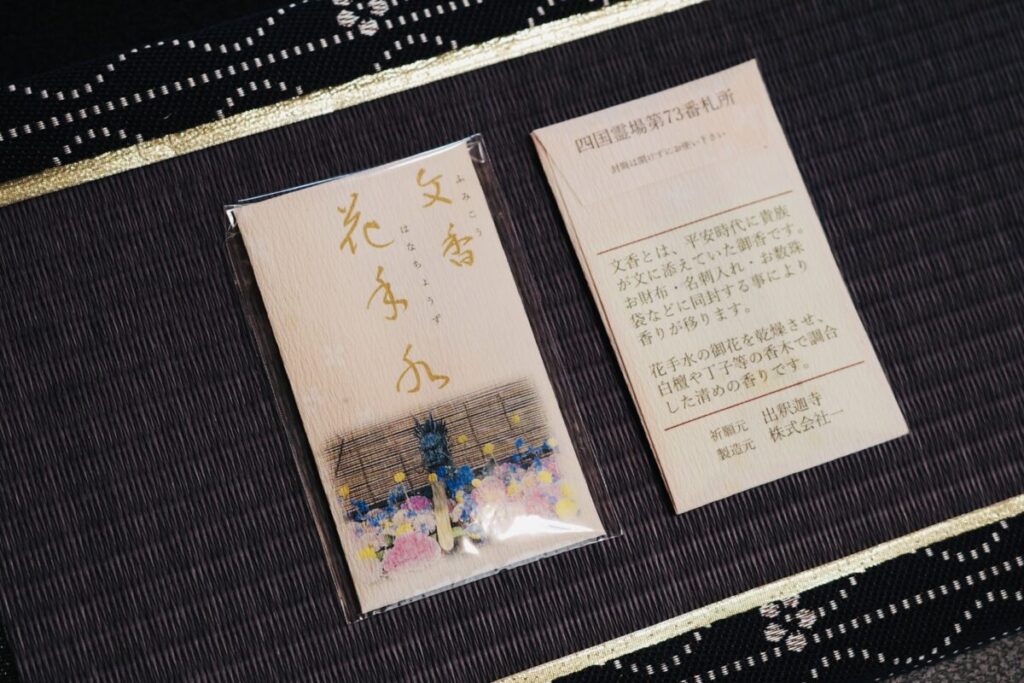 文香
ふみこう
花手水
はなちょうず
四国霊場第73番札所
封筒は開けずにお使い下さい
文香とは、平安時代に貴族
が文に添えていた御香です。
お財布・名刺入れ・お数珠
袋などに同封する事により
香りが移ります。
花手水の御花を乾燥させ、
白檀や丁子等の香木で調合
した清めの香りです。
祈願元 出釈迦寺
製造元 株式会社一